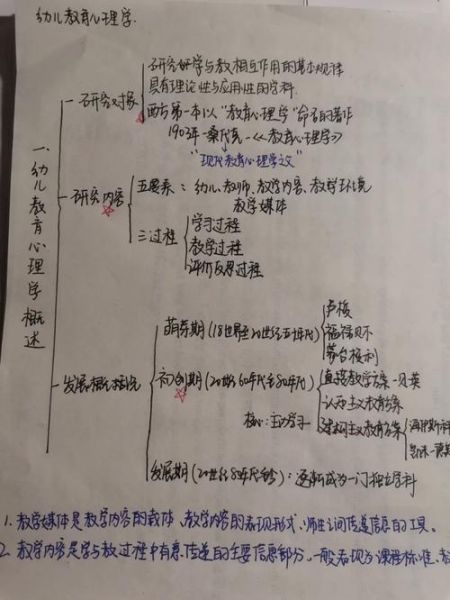 幼儿教育心理学
一、幼儿教育心理学概述
一研究对象
研究学与教相互作用的基本规律
具有理论性与应用性的学科.
西方第一本以“教育心理学”命名的著作
1903年-桑代克-《教育心理学》
“现代教育心理学之父”
研究内容
五要素：幼儿、教师、教学内容、教学环境
教学媒体
三过程
学习过程
教学过程
评价反思过程
发展概况
萌芽期(18世纪至20世纪五十年代)
卢梭
福禄贝尔
蒙台梭利
初创期(20世纪60年代至80年代)
核心:主动学习
直接教学方案-贝英
认知主义教育方案
建构主义教育方案
海伊斯科
发展期(20世纪80年代至今)：逐渐成为一门独立学科
1. 教学媒体是教学内容的载体、教学内容的表现形式、师生之间传递信息的工具。
2. 教学内容是学与教过程中有意传递的主要信息部分、一般表现为课程标准、教